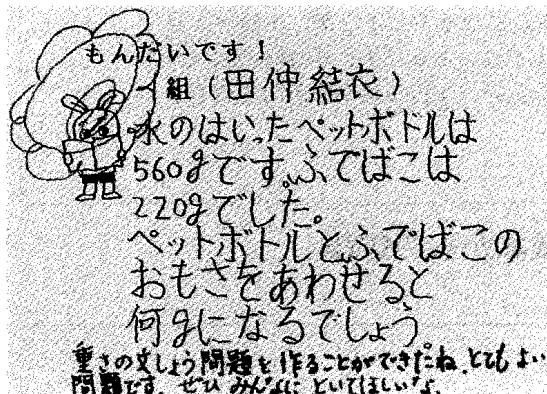 もんだいです！
一組（田仲結衣）
水のはいったペットボドルは
560gです。ふでばこは
220gでした。
ペットボトルとふでばこの
おもさをあわせると
何gになるでしょう
重さの文しょう問題を作ることができたね。とてもよい
問題です。ぜひみんなにといてほしいな。